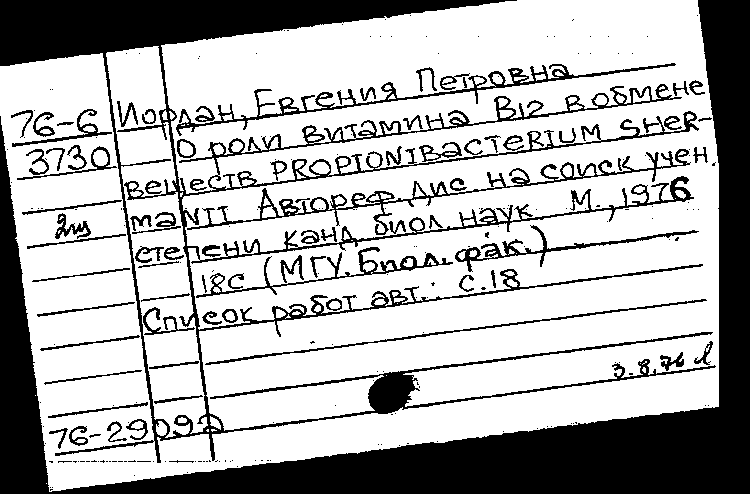 76-6 Иордан, Евгения Петровна
3730 О роли витамина B12 в обмене
веществ PROPIONIBACTERIUM SHER-
MANII Автореф. дис на соиск учен.
2 экз степени канд биол. наук М., 1976
18с (МГУ. Биол. фак.)
Список работ авт.: с.18
3.8.76
76-29092